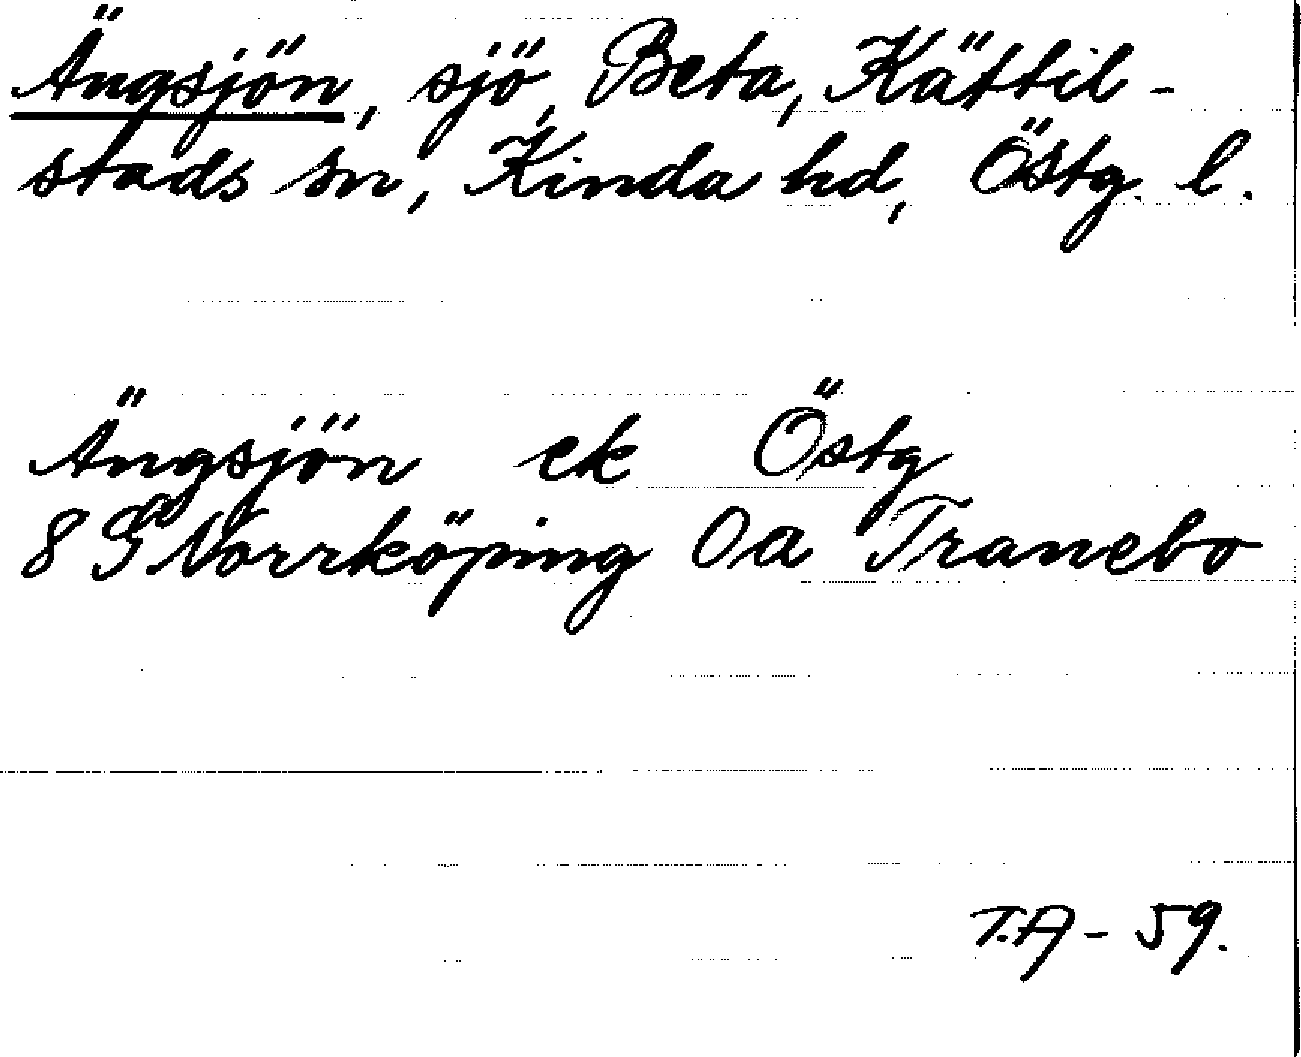 Ängsjön, sjö, Beta, Kättil-
stads sn, Kinda hd, Östg. l.
Ängsjön ek Östg
8 G Norrköping 0a Tranebo
T.A - 59.